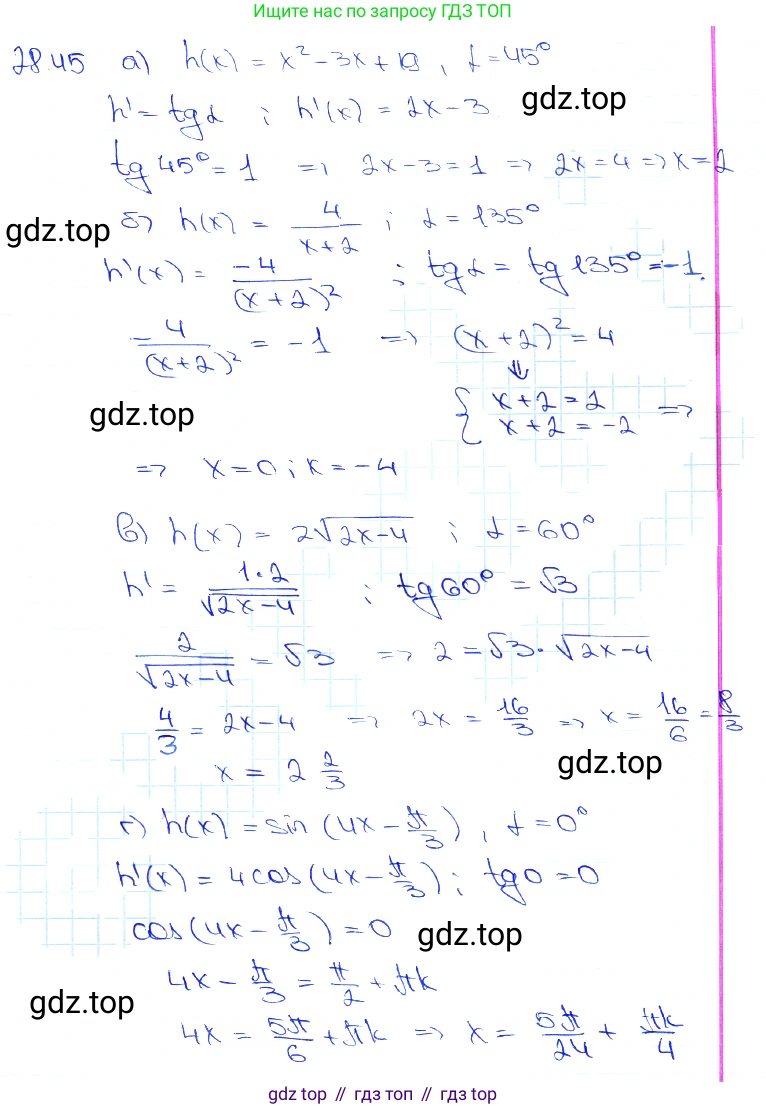 Ищите нас по запросу ГДЗ ТОП
28.45 а) h(x) = x² - 3x + 19, α = 45°
h' = tg α ; h'(x) = 2x - 3
gdz.top
tg 45° = 1 => 2x - 3 = 1 => 2x = 4 => x = 2
gdz.top
б) h(x) = 4/(x+2) ; α = 135°
h'(x) = -4/(x+2)² ; tg α = tg 135° = -1.
-4/(x+2)² = -1 => (x+2)² = 4
⇓
{ x+2 = 2
x+2 = -2 =>
gdz.top
=> x = 0 ; x = -4
в) h(x) = 2√(2x-4) ; α = 60°
h' = 1·2/√(2x-4) ; tg 60° = √3
2/√(2x-4) = √3 => 2 = √3 · √(2x-4)
4/3 = 2x - 4 => 2x = 16/3 => x = 16/6 = 8/3
x = 2 2/3
gdz.top
г) h(x) = sin (4x - π/3), α = 0°
h'(x) = 4cos(4x - π/3) ; tg 0 = 0
cos(4x - π/3) = 0
gdz.top
4x - π/3 = π/2 + πk
gdz.top
4x = 5π/6 + πk => x = 5π/24 + πk/4
gdz top // гдз топ // gdz top